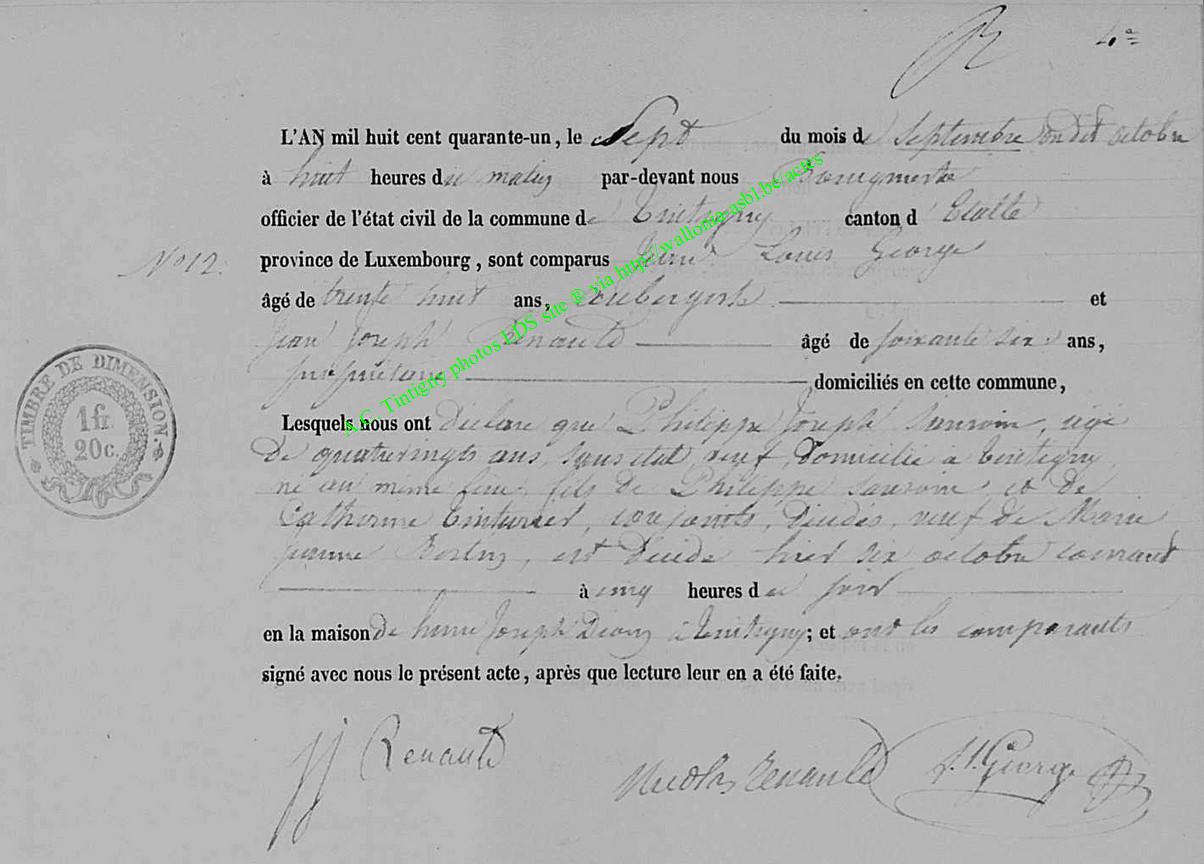 4e
L'AN mil huit cent quarante-un, le Sept du mois de Septembre on dit octobre
à huit heures du matin par-devant nous Bourgmestre
officier de l'état civil de la commune de Tintigny canton d'Etalle
N° 12.
province de Luxembourg, sont comparus Louis George
âgé de trente huit ans, aubergiste et
Jean Joseph Renauld âgé de soixante six ans,
propriétaire domiciliés en cette commune,
Lesquels nous ont déclaré que Philippe Joseph Sauvoin, agé
de quatrevingts ans, sans état, veuf, domicilié a tintigny,
né au meme lieu, fils de Philippe Sauvoin et de
Catherine conjoints, décédés, veuf de Marie
Jeanne est décédé hier six octobre courant
à cinq heures du soir
en la maison de Joseph à Tintigny; et ont les comparants
signé avec nous le présent acte, après que lecture leur en a été faite.
JJ Renauld
Nicolas Renauld
George
TIMBRE DE DIMENSION.
1 fr.
20 c.
A.C. Tintigny photos EDS site ® via http://wallonia-asbl.be/actes